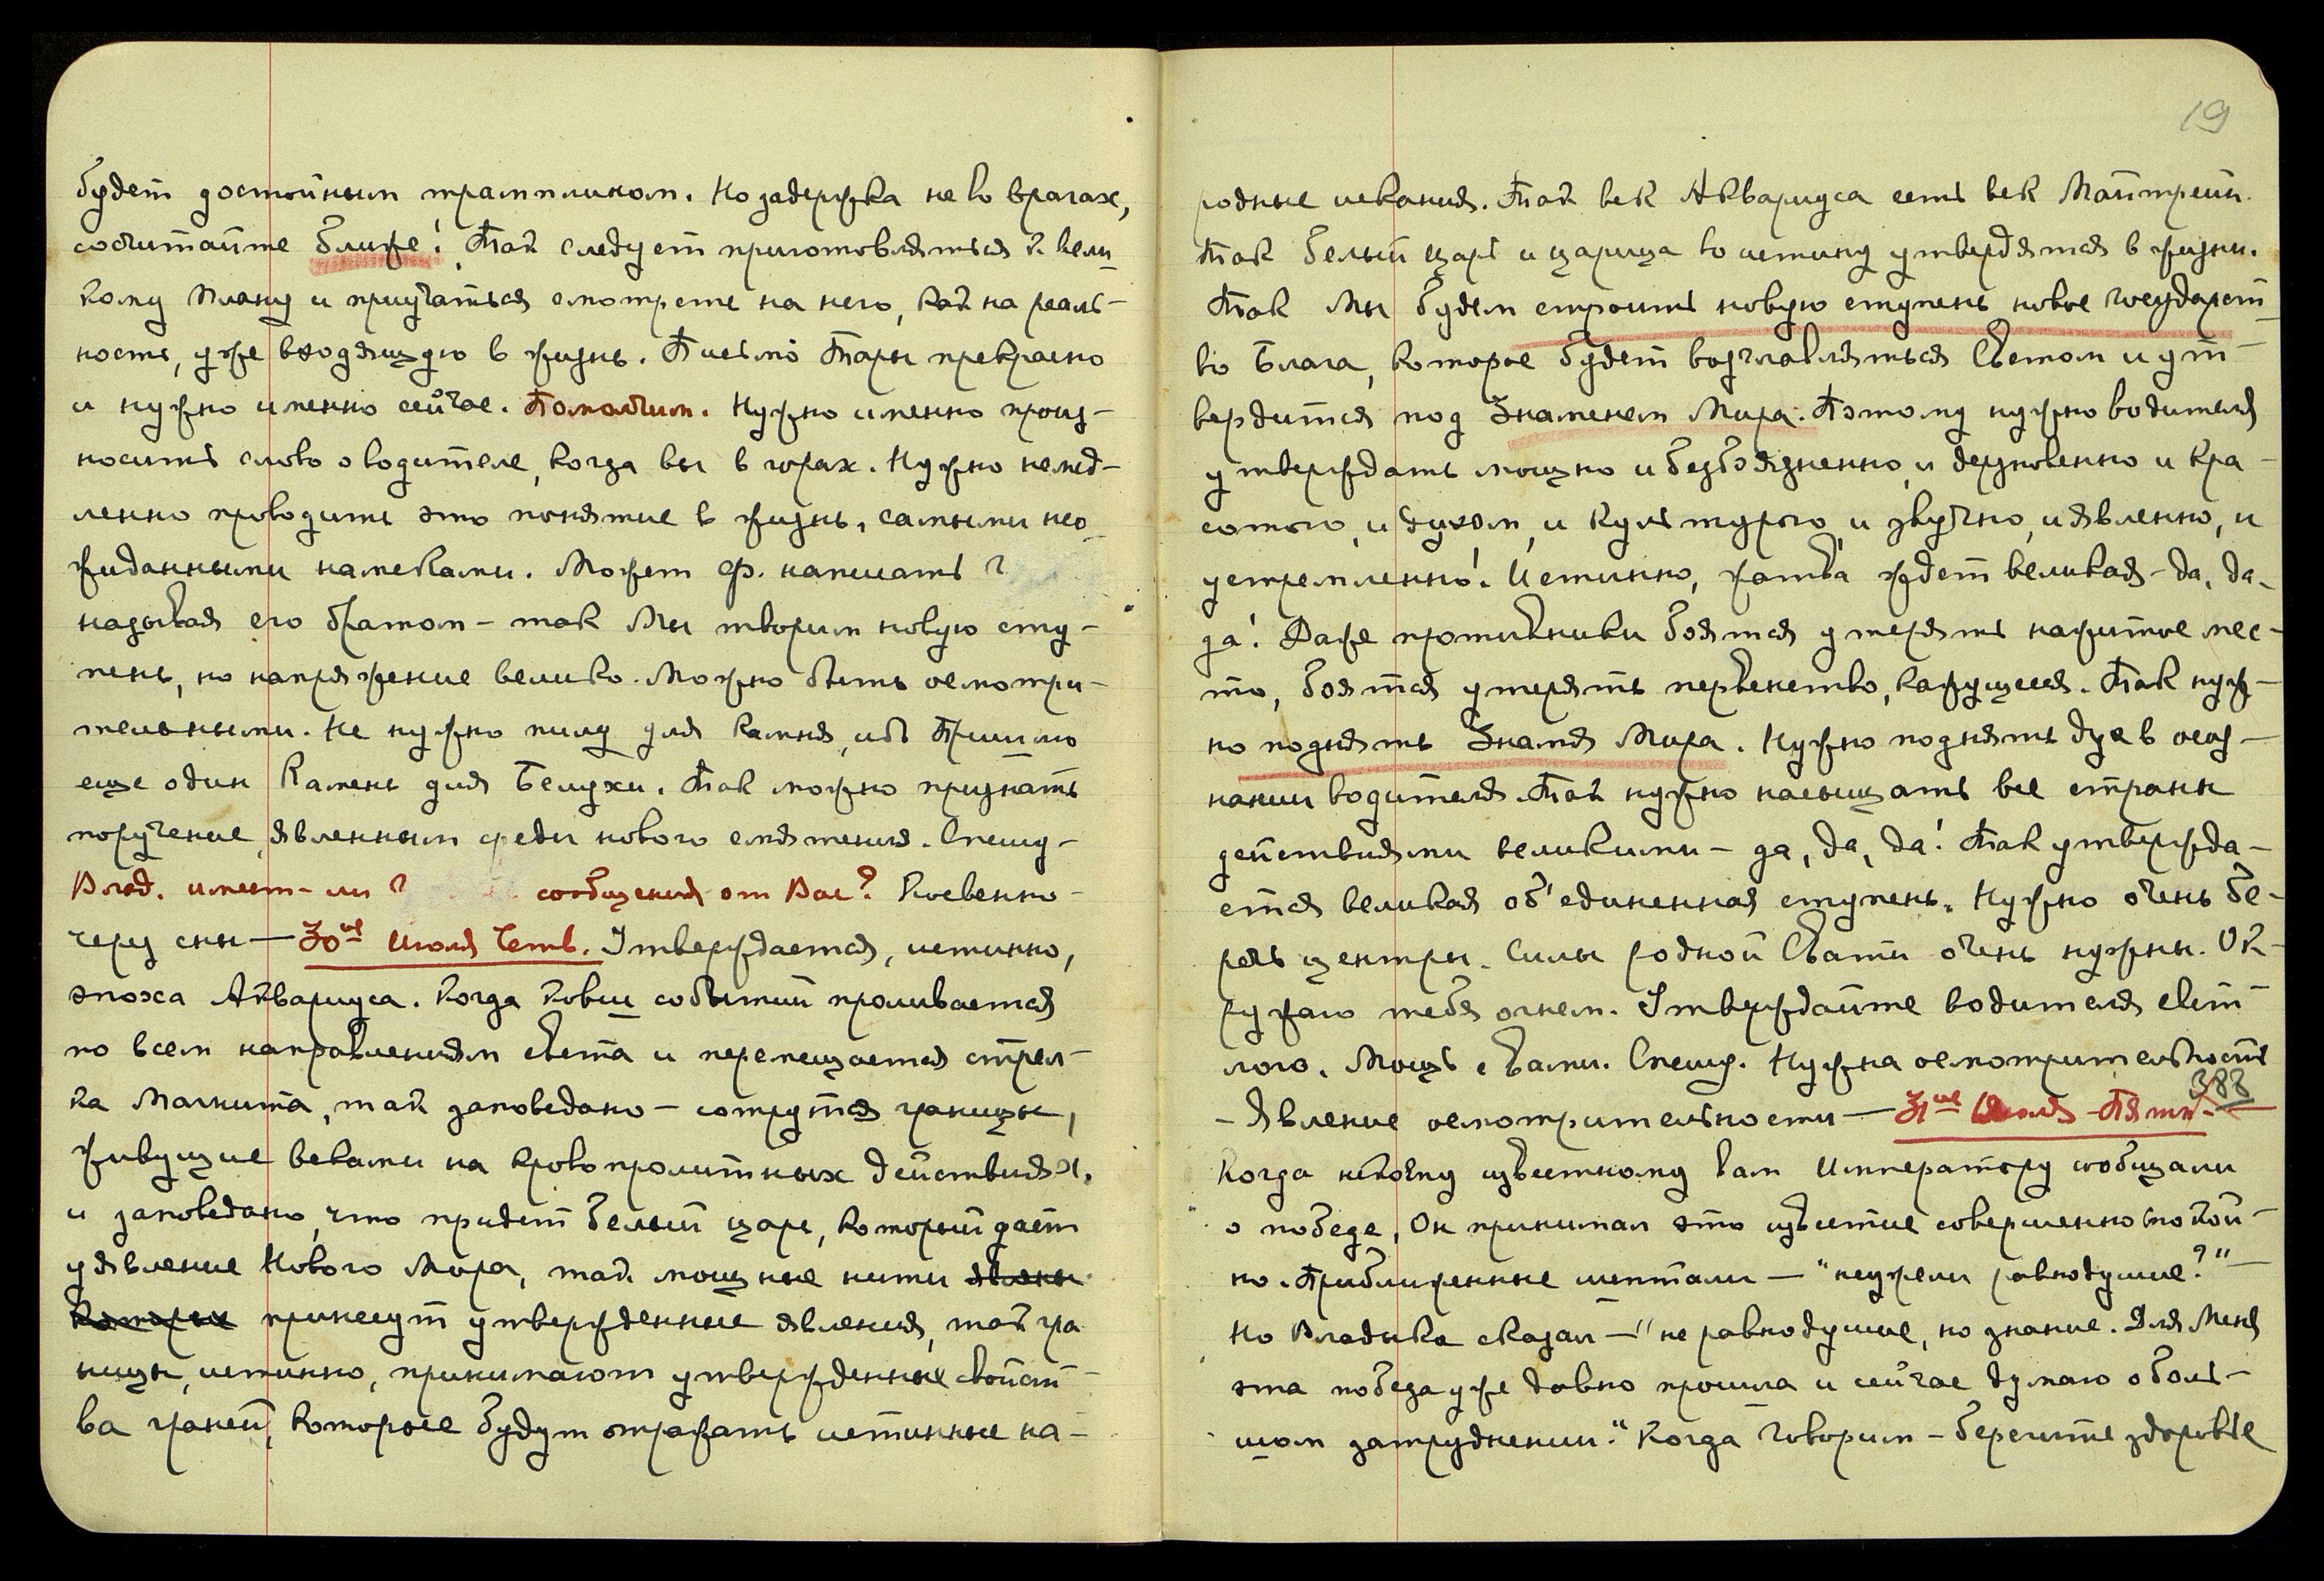 будет достойным трамплином. Но задержка не во врагах,
сосчитайте ближе! Так следует приготовляться к вели-
кому Плану и приучаться смотреть на него, как на реаль-
ность, уже входящую в жизнь. Письмо Тары прекрасно
и нужно именно сейчас. Помолчим. Нужно именно произ-
носить слово о водителе, когда вы в горах. Нужно немед-
ленно проводить это понятие в жизнь, самыми нео-
жиданными намеками. Может Ф. написать ?
называя его братом – так Мы творим новую сту-
пень, но напряжение велико. Можно быть осмотри-
тельными. Не нужно пилу для камня, ибо Пришло
еще один Камень для Белухи. Так можно признать
поручение, явленным среди нового смятения. Спешу –
Влад. имеет-ли ? сообщения от Вас? Косвенно –
через сны — 30ое Июля Четв. Утверждается, истинно,
эпоха Аквариуса. Когда Ковш событий проливается
по всем направлениям света и перемещается стрел-
ка Магнита, так заповедано – сотрутся границы,
живущие веками на кровопролитных действиях,
и заповедано, что придет белый царь, который даст
уявление Нового Мира, так мощные нити явлены
которые принесут утвержденные явления, так гра
ницы, истинно, принимают утвержденные свойст-
ва граней, которые будут отражать истинные на-
19
родные искания. Так век Аквариуса есть век Майтрейи.
Так белый царь и царица во истину утвердятся в жизни.
Так Мы будем строить новую ступень новое государст-
во Блага, которое будет возглавляться Светом и ут-
вердится под Знаменем Мира. Поэтому нужно водителя
утверждать мощно и безбоязненно, и дерзновенно и кра-
сотою, и духом, и культурою, и звучно, и явленно, и
устремленно! Истинно, жатва ждет великая – да, да,
да! Даже противники боятся утерять нажитое мес-
то, боятся утерять первенство, кажущееся. Так нуж-
но поднять Знамя Мира. Нужно поднять дух в осоз-
нании водителя. Так нужно насыщать все страны
действиями великими – да, да, да! Так утвержда-
ется великая об'единенная ступень. Нужно очень бе-
речь центры. Силы родной Свати очень нужны. Ок-
ружаю тебя огнем. Утверждайте водителя свет-
лого. Мощь с Вами. Спешу. Нужна осмотрительность
– Явление осмотрительности — 31ое Июля Пятн.
388
Когда некоему известному вам Императору сообщали
о победе, Он принимал это известие совершенно спокой-
но. Приближенные шептали — "неужели равнодушие?" –
Но Владыка сказал — "не равнодушие, но знание. Для Меня
эта победа уже давно прошла и сейчас думаю о боль-
шом затруднении." Когда говорим – берегите здоровье